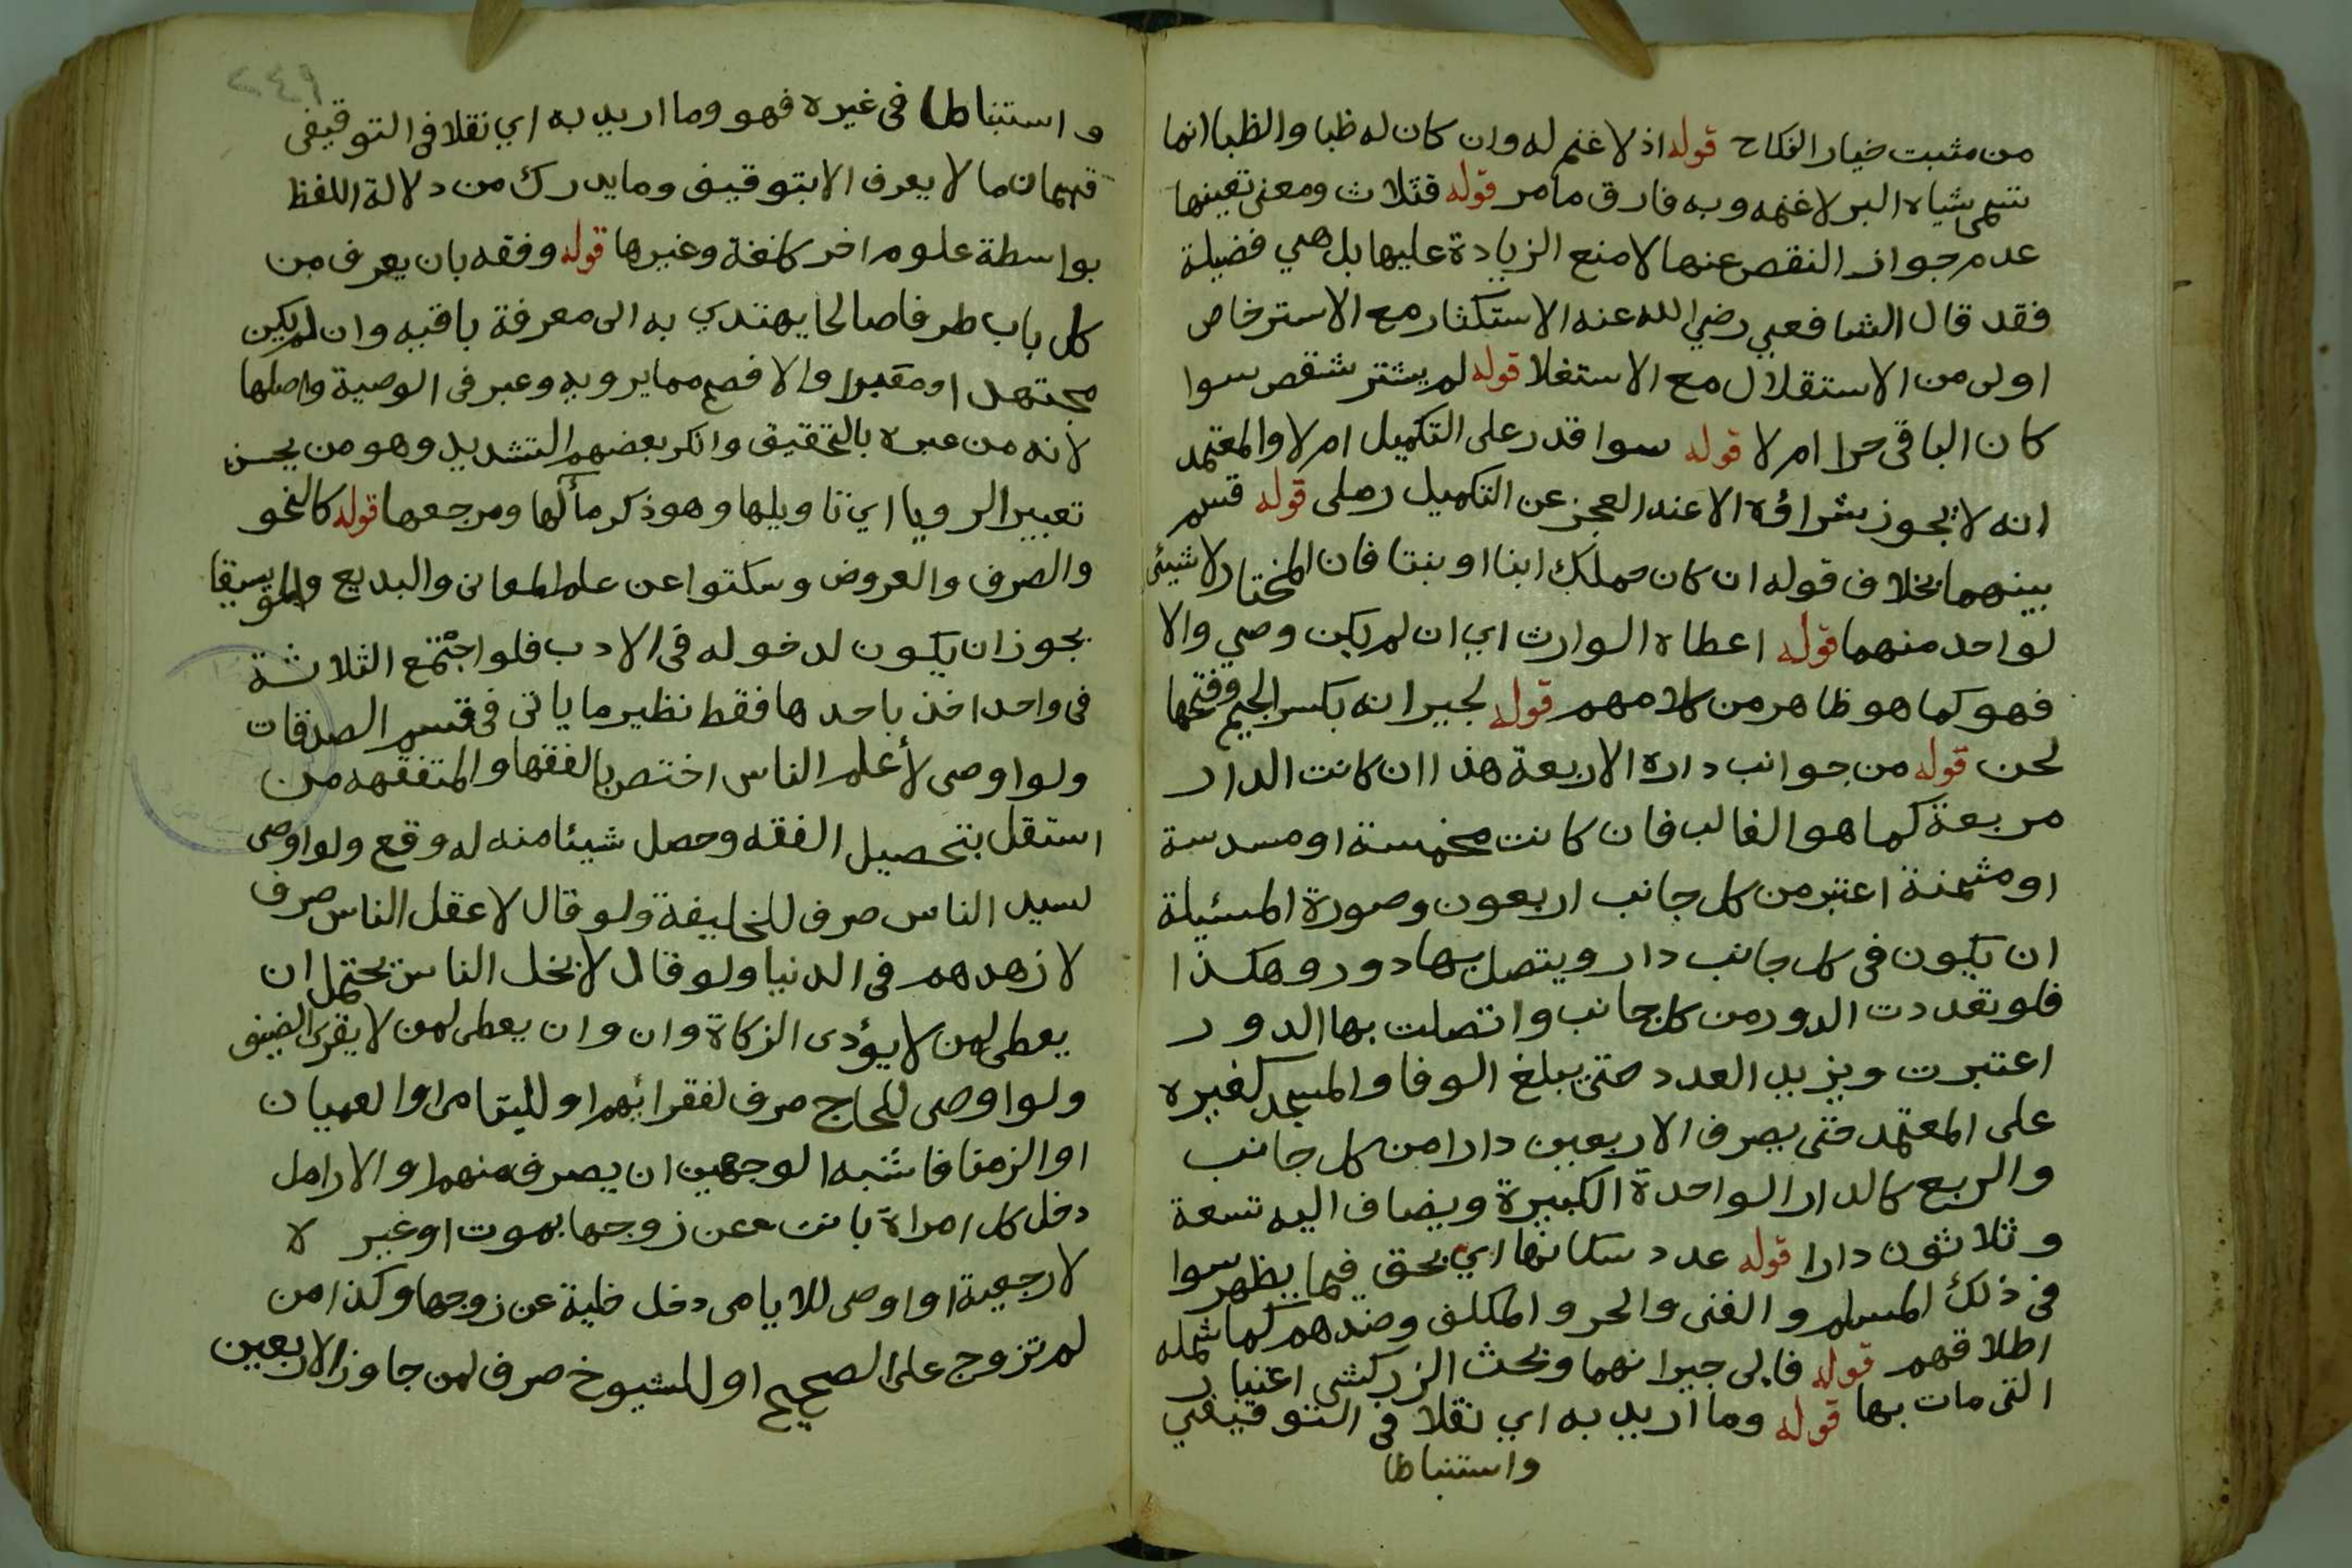 من مثبت خيار النكاح قوله اذ لا غنم له وان كان له ظبا والظبا انما
تسمى شياه البر لا غنمه وبه فارق ما مر قوله فثلاث ومعنى تعينها
عدم جواز النقص عنها لا منع الزيادة عليها بل هي فضيلة
فقد قال الشافعي رضي الله عنه الاستكثار مع الاسترخاص
اولى من الاستقلال مع الاستغلا قوله لم يشتر شقص سوا
كان الباقي حرا ام لا قوله سوا قدر على التكميل ام لا والمعتمد
انه لا يجوز شراؤه الا عند العجز عن التكميل رملى قوله قسم
بينهما بخلاف قوله ان كان حملك ابنا او بنتا فان المختار لا شيئ
لواحد منهما قوله اعطاه الوارث اي ان لم يكن وصي والا
فهو كما هو ظاهر من كلامهم قوله لجيرانه بكسر الجيم وفتحها
لحن قوله من جوانب داره الاربعة هذا ان كانت الدار
مربعة كما هو الغالب فان كانت مخمسة او مسدسة
او مثمنة اعتبر من كل جانب اربعون وصورة المسئيلة
ان يكون فى كل جانب دار ويتصل بها دور وهكذا
فلو تعددت الدور من كل جانب واتصلت بها الدور
اعتبرت ويزيد العدد حتى يبلغ الوفا والمسجد كغيره
على المعتمد حتى يصرف الاربعين دارا من كل جانب
والربع كالدار الواحدة الكبيرة ويضاف اليه تسعة
وثلاثون دارا قوله عدد سكانها اي بحق فيما يظهر سوا
فى ذلك المسلم والغنى والحر والمكلف وضدهم كما شمله
اطلاقهم قوله فالى جيرانهما وبحث الزركشى اعتبار
التى مات بها قوله وما اريد به اي نقلا فى التوقيفي
واستنباطا
٢٤٩
واستنباطا فى غيره فهو وما اريد به اي نقلا فى التوقيفى
قسمان ما لا يعرف الا بتوقيف وما يدرك من دلالة اللفظ
بواسطة علوم اخر كلغة وغيرها قوله وفقه بان يعرف من
كل باب طرفا صالحا يهتدي به الى معرفة باقيه وان لم يكن
مجتهدا ومعبرا والافصح مما يرويه وعبر فى الوصية واصلها
لانه من عبره بالتحقيق وانكر بعضهم التشديد وهو من يحسن
تعبير الرويا اي تاويلها وهو ذكر مألها ومرجعها قوله كالنحو
والصرف والعروض وسكتوا عن علم المعانى والبديع والموسيقا
يجوز ان يكون لدخوله فى الادب فلو اجتمع الثلاثة
فى واحد اخذ باحدها فقط نظير ما ياتى فى قسم الصدقات
ولو اوصى لأعلم الناس اختص بالفقها والمتفقهه من
استقل بتحصيل الفقه وحصل شيئا منه له وقع ولو اوصى
لسيد الناس صرف للخليفة ولو قال لاعقل الناس صرف
لازهدهم فى الدنيا ولو قال لابخل الناس يحتمل ان
يعطى لمن لا يؤدى الزكاة وان وان يعطى لمن لا يقرى الضيف
ولو اوصى للحاج صرف لفقرائهم او لليتامى او العميان
او الزمنا فاشبه الوجهين ان يصرف منهم او الارامل
دخل كل امراة بانت عن زوجها بموت او غيره
لا رجعية او اوصى للايامى دخل خلية عن زوجها وكذا من
لم تزوج على الصحيح او للشيوخ صرف لمن جاوز الاربعين